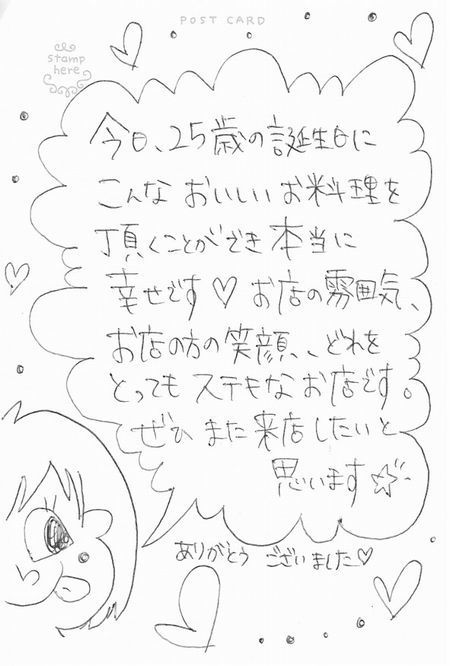 POST CARD
stamp
here
今日、25歳の誕生日に
こんな おいしい お料理を
頂くことができ 本当に
幸せです♡ お店の雰囲気、
お店の方の笑顔、、どれを
とっても ステキな お店です。
ぜひ また 来店したいと
思います☆
ありがとう ございました♡